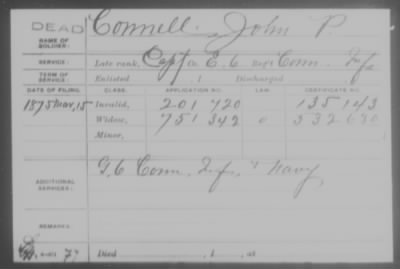 DEAD
NAME OF SOLDIER: Connell, John P.
SERVICE: Late rank, Capt Co. E, 6 Reg't Conn. Inf.
TERM OF SERVICE: Enlisted , 1 Discharged
DATE OF FILING. CLASS. APPLICATION NO. LAW. CERTIFICATE NO.
1875 Mar, 15 Invalid, 201 720 135 143
Widow, 751 342 532 630
Minor,
ADDITIONAL SERVICES: G. 6 Conn. Inf. & Navy
REMARKS:
Died , 1 , at